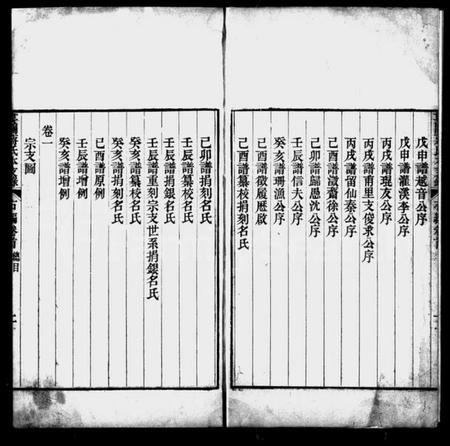 戊申譜遜音公序
戊申譜灌溪李公序
丙戌譜琨友公序
丙戌譜甫里支俊求公序
丙戌譜留仙秦公序
己酉譜澂齋徐公序
己卯譜歸愚沈公序
壬辰譜信夫公序
癸亥譜珊漁公序
己酉譜徵履歷啟
己酉譜纂校捐刻名氏
己卯譜捐刻名氏
壬辰譜纂校名氏
壬辰譜捐銀名氏
壬辰譜重刻宗支世系捐銀名氏
癸亥譜纂校名氏
癸亥譜捐刻名氏
己酉譜原例
壬辰譜增例
癸亥譜增例
卷一
宗支圖